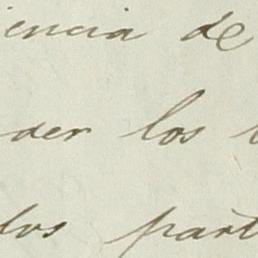 iencia de
der los
los part